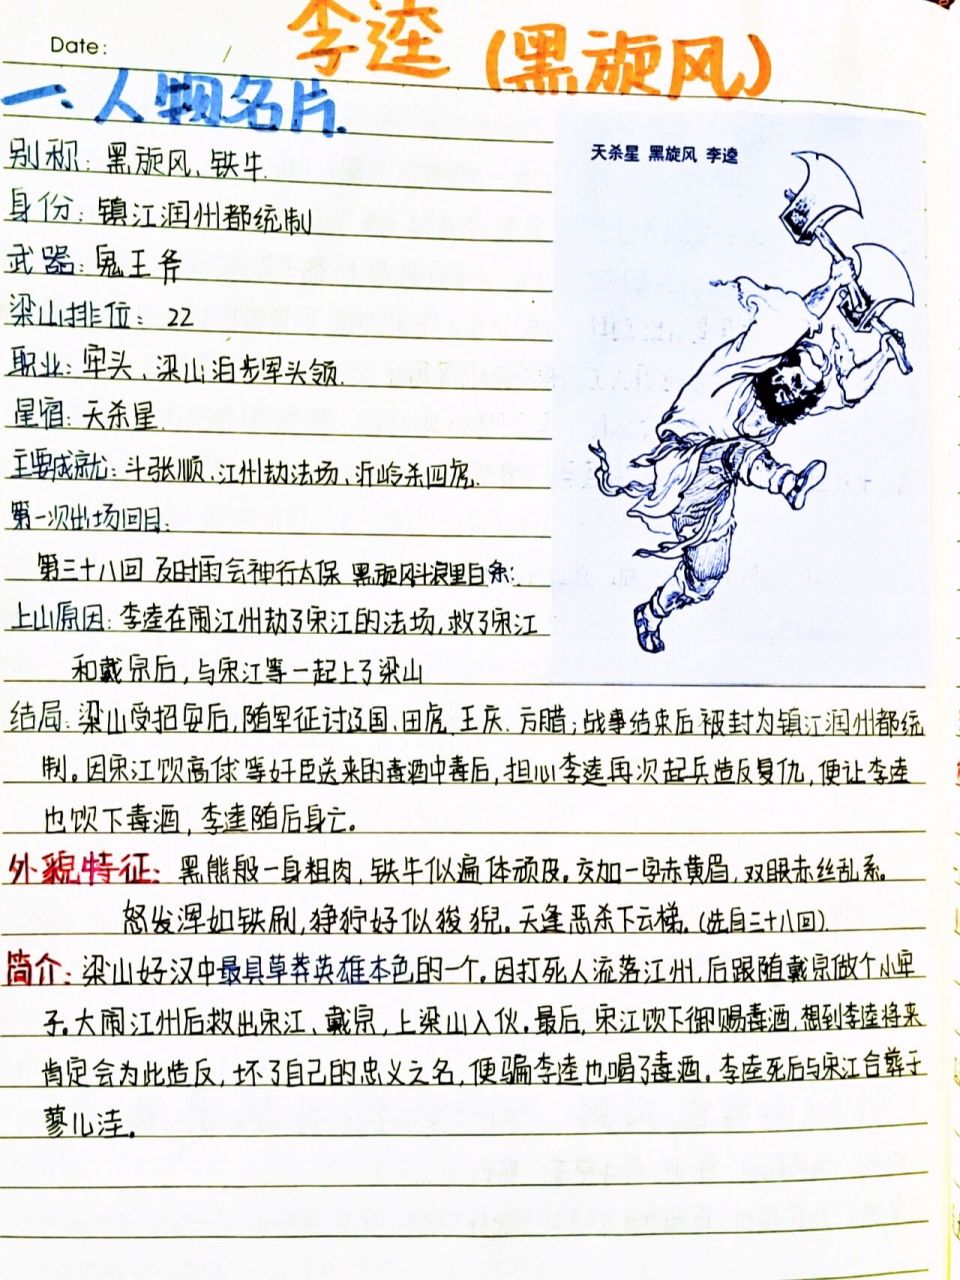 Date:
李逵(黑旋风)
一、人物名片.
天杀星 黑旋风 李逵
别称:黑旋风、铁牛.
身份:镇江润州都统制
武器:鬼王斧
梁山排位:22
职业:牢头、梁山泊步军头领.
星宿:天杀星.
主要成就:斗张顺、江州劫法场、沂岭杀四虎.
第一次出场回目:
第三十八回 及时雨会神行太保 黑旋风斗浪里白条:
上山原因:李逵在闹江州劫了宋江的法场,救了宋江
和戴宗后,与宋江等一起上了梁山
结局:梁山受招安后,随军征讨辽国、田虎、王庆、方腊;战事结束后被封为镇江润州都统
制。因宋江饮高俅等奸臣送来的毒酒中毒后,担心李逵再次起兵造反复仇,便让李逵
也饮下毒酒,李逵随后身亡。
外貌特征:黑熊般一身粗肉,铁牛似遍体顽皮。交加一字赤黄眉,双眼赤丝乱系。
怒发浑如铁刷,狰狞好似狻猊。天蓬恶杀下云梯。(选自三十八回).
简介:梁山好汉中最具草莽英雄本色的一个。因打死人流落江州,后跟随戴宗做个小牢
子。大闹江州后救出宋江、戴宗,上梁山入伙。最后,宋江饮下御赐毒酒,想到李逵将来
肯定会为此造反,坏了自己的忠义之名,便骗李逵也喝了毒酒。李逵死后与宋江合葬于
蓼儿洼。